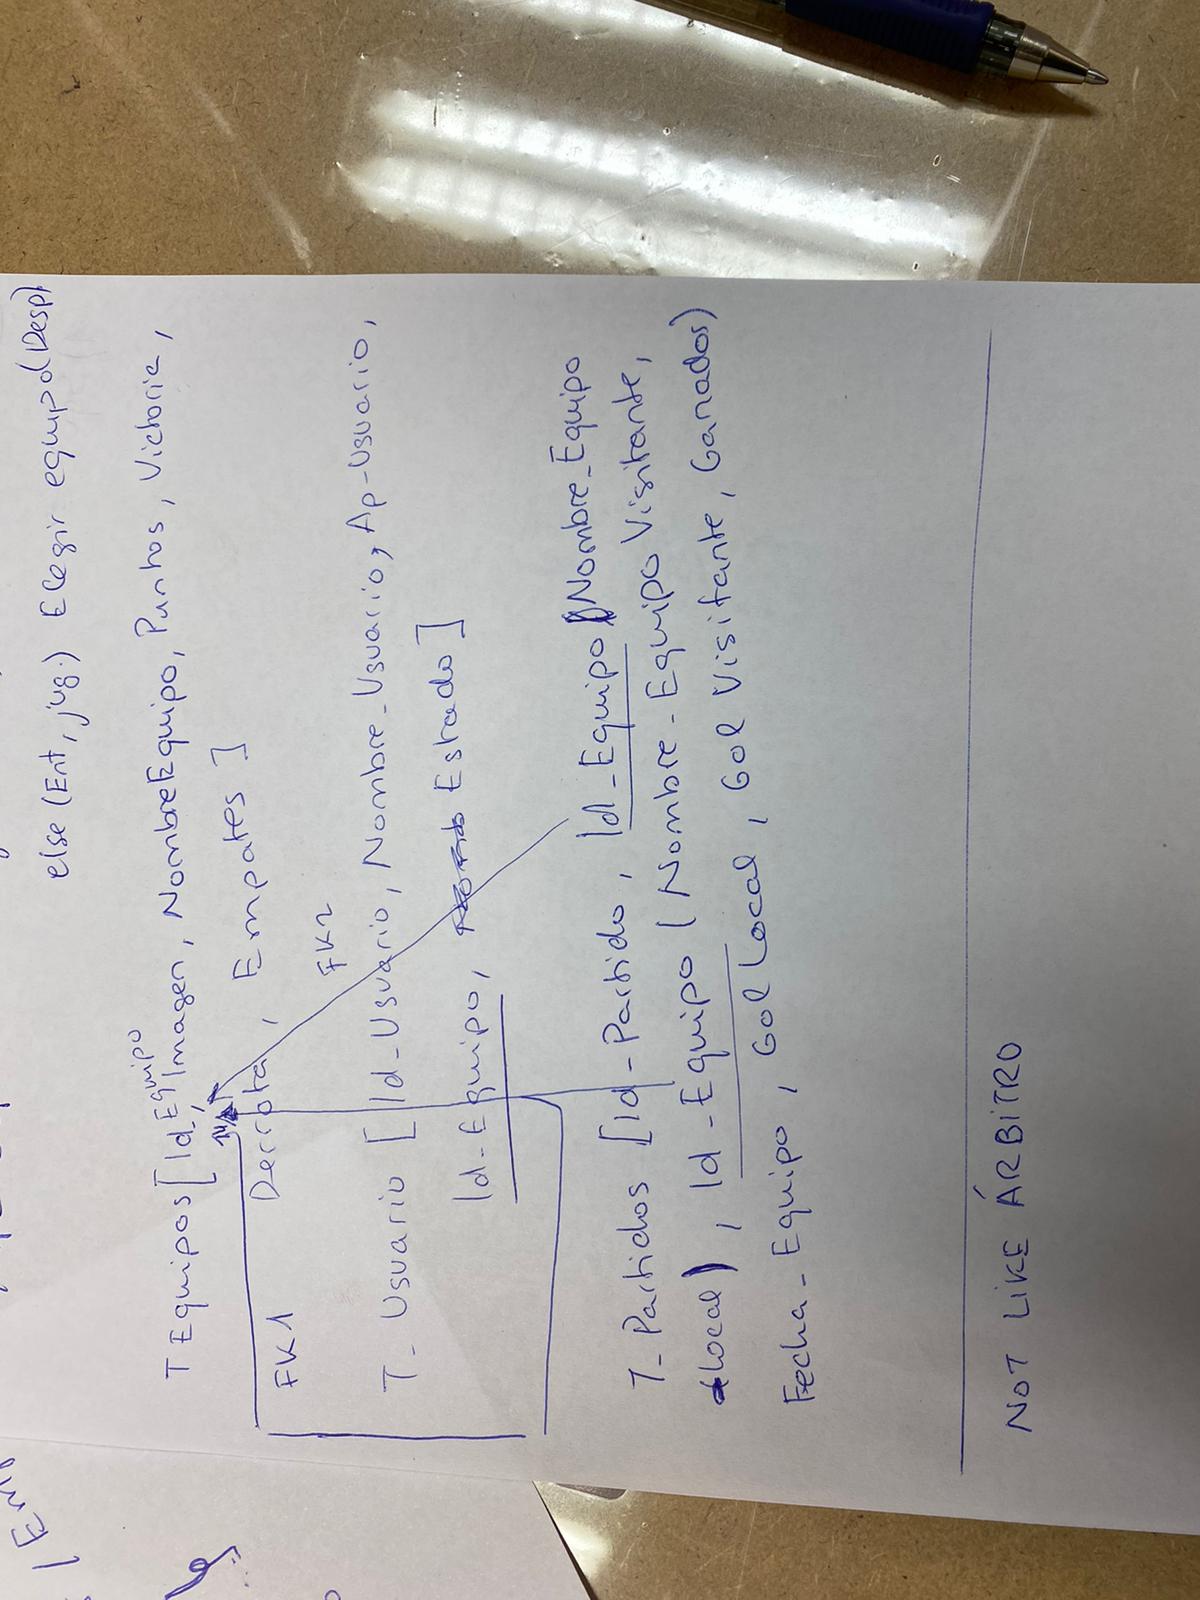 else (Ent, jug.) Elegir equipo(Desp)
T Equipos [Id_Equipo, Imagen, NombreEquipo, Puntos, Victoria,
Derrota, Empates]
FK1
FK2
T_ Usuario [Id_Usuario, Nombre_Usuario, Ap_Usuario,
Id_Equipo, Estado]
T_ Partidos [Id_Partido, Id_Equipo (Nombre_Equipo
Local), Id_Equipo (Nombre_Equipo Visitante,
Fecha_Equipo, Gol Local, Gol Visitante, Ganados)
NOT LIKE ÁRBITRO